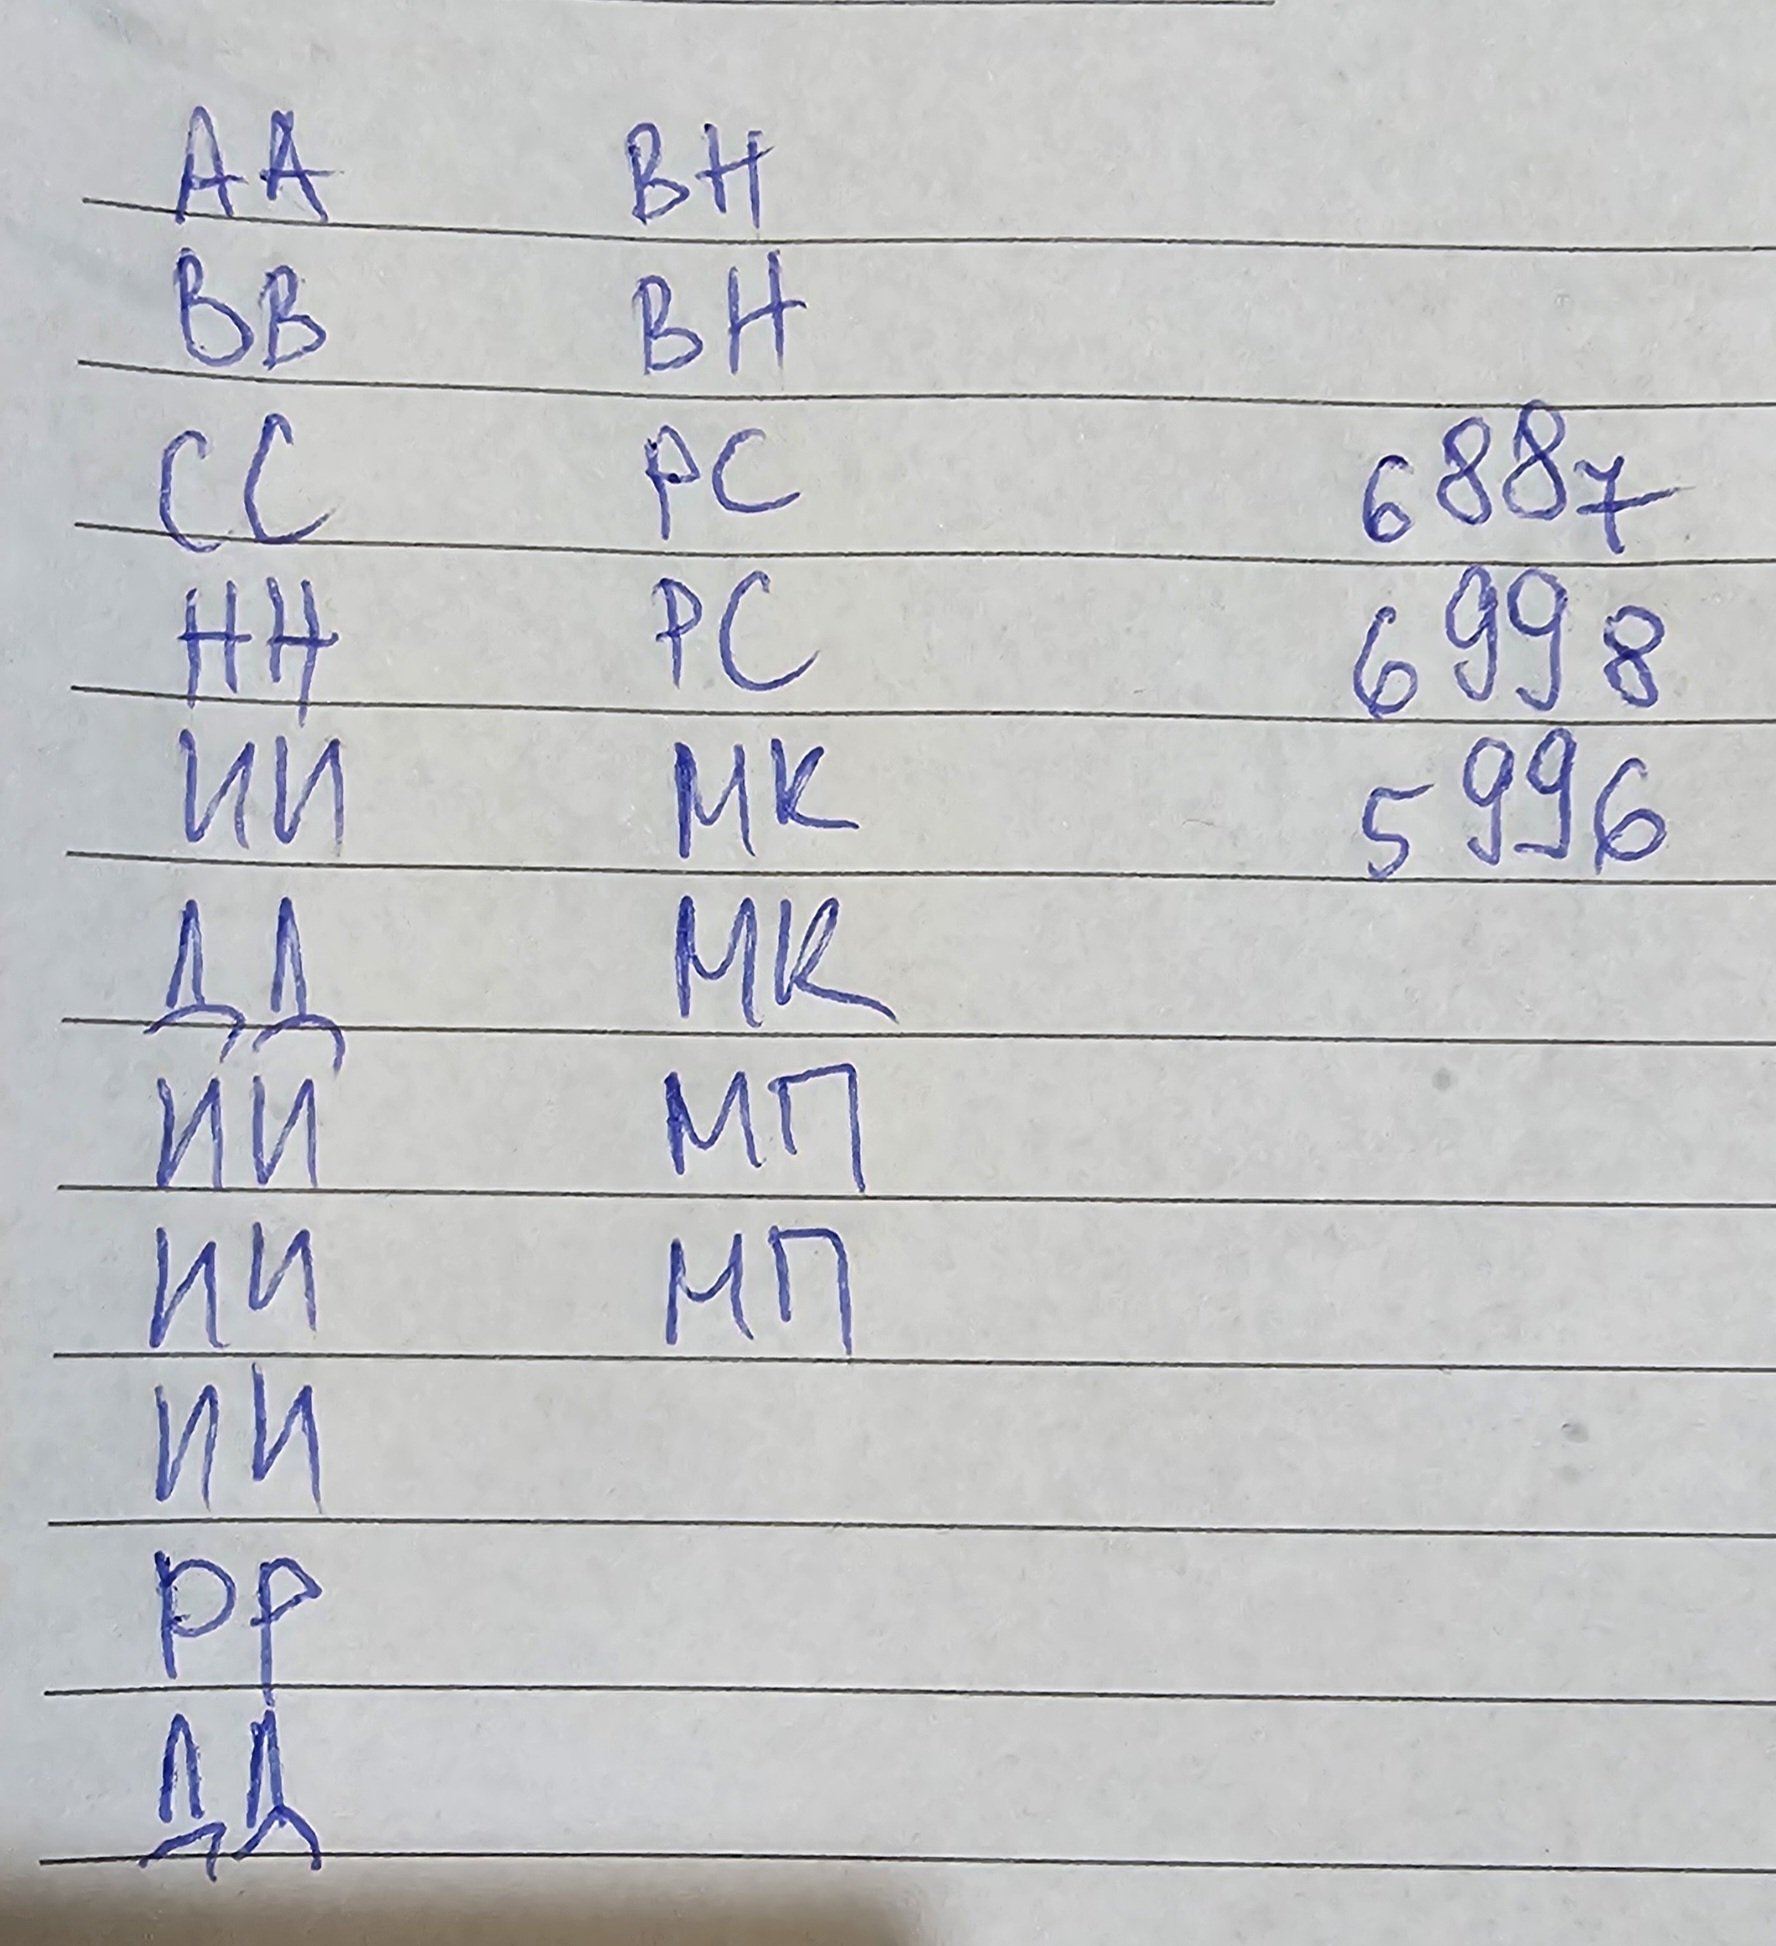 АА ВН
ВВ ВН
СС РС 6887
НН РС 6998
ИИ МК 5996
ДД МК
ИИ МП
ИИ МП
ИИ
РР
ДД